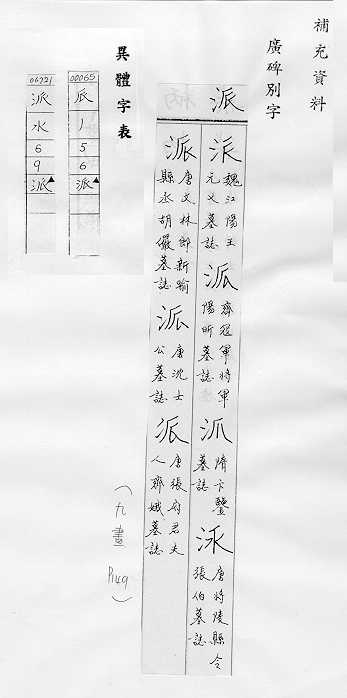 補充資料
廣碑別字
派
魏江陽王元乂墓誌
派
齊冠軍將軍陽昕墓誌
隋卞鑒墓誌
唐將陵縣令張伯墓誌
派
唐文林郎新喻縣丞胡儼墓誌
派
唐沈士公墓誌
派
唐張府君夫人齊娥墓誌
（九畫 P149）
異體字表
00065
𠂢
1
5
6
派▲
06721
派
水
6
9
派▲